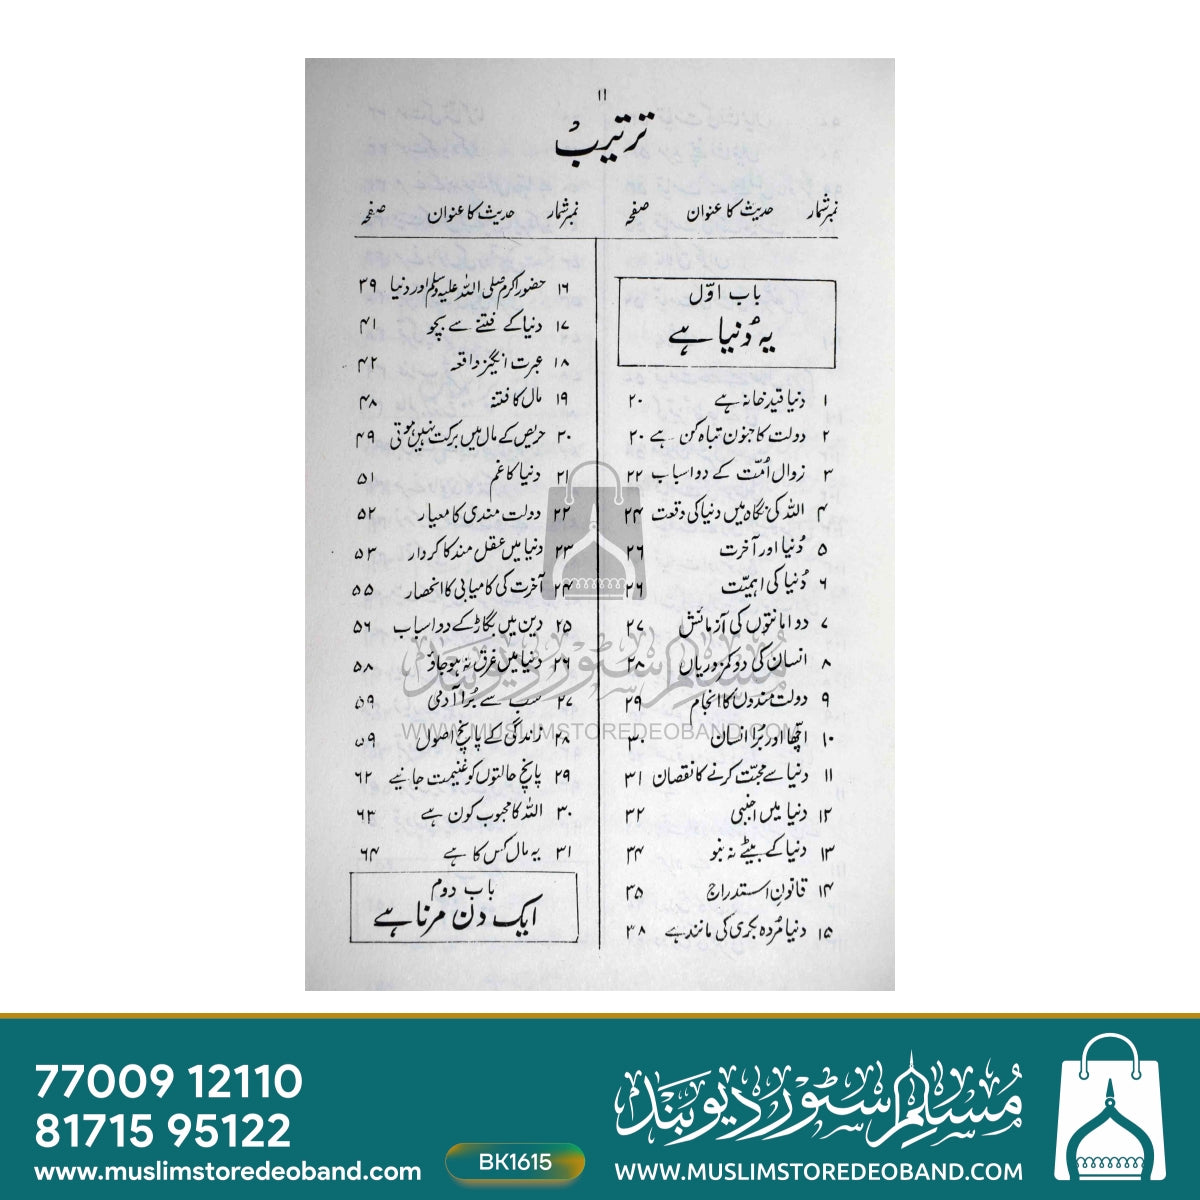 ۱۱
ترتیب
نمبر شمار حدیث کا عنوان صفحہ
باب اوّل
یہ دُنیا ہے
۱ دنیا قید خانہ ہے ۲۰
۲ دولت کا جنون تباہ کن ہے ۲۰
۳ زوال اُمّت کے دو اسباب ۲۲
۴ اللہ کی نگاہ میں دنیا کی وقعت ۲۴
۵ دُنیا اور آخرت ۲۶
۶ دُنیا کی اہمیّت ۲۶
۷ دو امانتوں کی آزمائش ۲۷
۸ انسان کی دو کمزوریاں ۲۸
۹ دولت مندوں کا انجام ۲۹
۱۰ اچھّا اور بُرا انسان ۳۰
۱۱ دنیا سے محبّت کرنے کا نقصان ۳۱
۱۲ دنیا میں اجنبی ۳۲
۱۳ دنیا کے بیٹے نہ بنو ۳۴
۱۴ قانونِ استدراج ۳۵
۱۵ دنیا مُردہ بکری کی مانند ہے ۳۸
نمبر شمار حدیث کا عنوان صفحہ
۱۶ حضور اکرم صلی اللہ علیہ وسلم اور دنیا ۳۹
۱۷ دنیا کے فتنے سے بچو ۴۱
۱۸ عبرت انگیز واقعہ ۴۲
۱۹ مال کا فتنہ ۴۸
۲۰ حریص کے مال میں برکت نہیں ہوتی ۴۹
۲۱ دنیا کا غم ۵۱
۲۲ دولت مندی کا معیار ۵۲
۲۳ دنیا میں عقل مند کا کردار ۵۳
۲۴ آخرت کی کامیابی کا انحصار ۵۵
۲۵ دین میں بگاڑ کے دو اسباب ۵۶
۲۶ دنیا میں غرق نہ ہو جاؤ ۵۸
۲۷ سب سے بُرا آدمی ۵۹
۲۸ زندگی کے پانچ اصول ۵۹
۲۹ پانچ حالتوں کو غنیمت جانیے ۶۲
۳۰ اللہ کا محبوب کون ہے ۶۳
۳۱ یہ مال کس کا ہے ۶۴
باب دوم
ایک دن مرنا ہے
مُسلم سٹور دیوبند
WWW.MUSLIMSTOREDEOBAND.COM
77009 12110
81715 95122
www.muslimstoredeoband.com
BK1615
مُسلم سٹور دیوبند
WWW.MUSLIMSTOREDEOBAND.COM